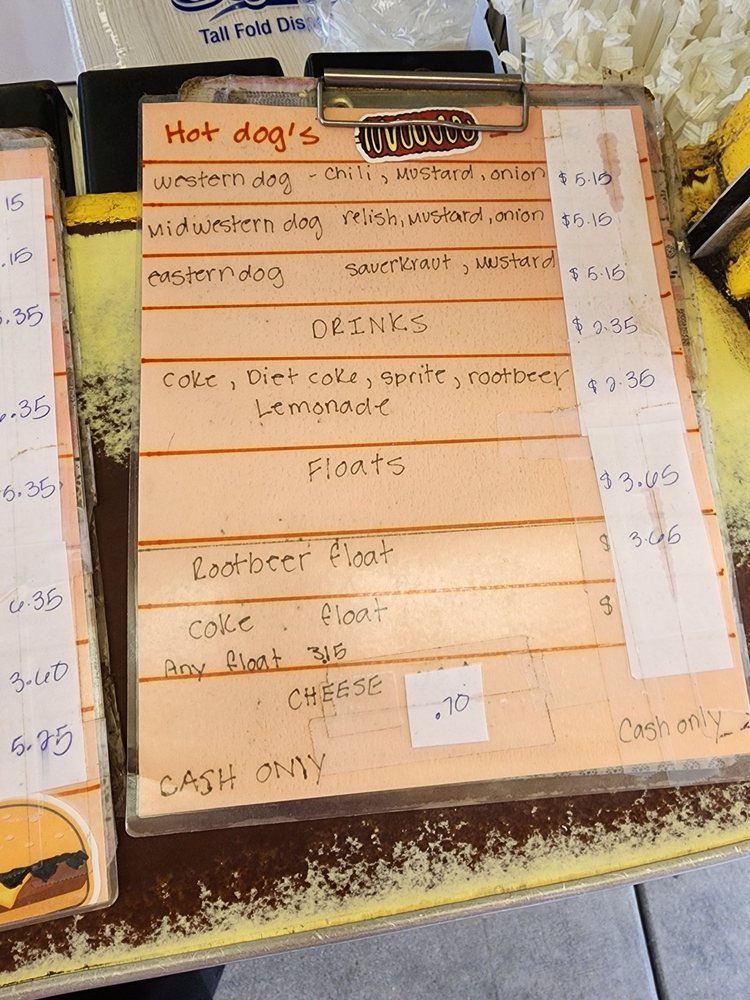 Tall Fold
15
.15
.35
.35
5.35
6.35
3.60
5.25
Hot dog's
western dog - chili, mustard, onion $5.15
midwestern dog relish, mustard, onion $5.15
eastern dog sauerkraut, mustard $5.15
DRINKS $2.35
Coke, Diet coke, sprite, rootbeer $2.35
Lemonade
Floats $3.65
Rootbeer float $ 3.65
coke float $
Any float 315
CHEESE .70
CASH ONLY Cash only